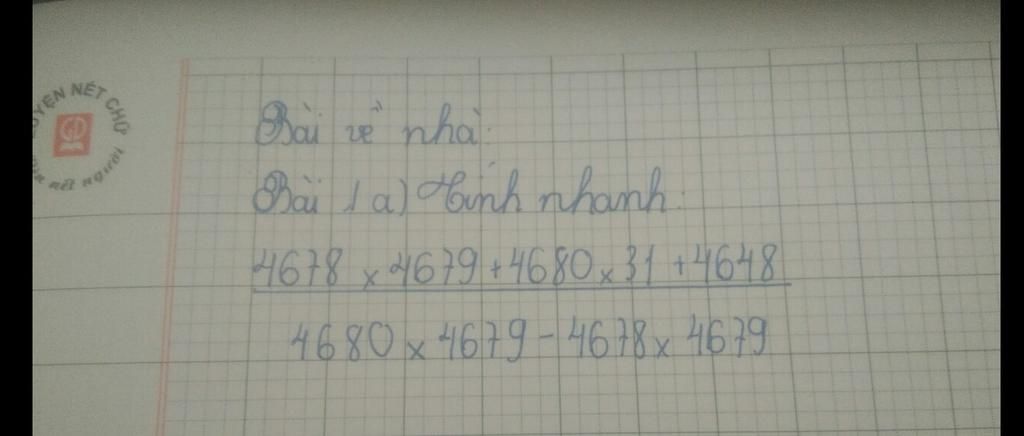 LUYỆN NÉT CHỮ
Rèn nết người
Bài về nhà:
Bài 1 a) Tính nhanh:
4678 x 4679 + 4680 x 31 + 4648
4680 x 4679 - 4678 x 4679